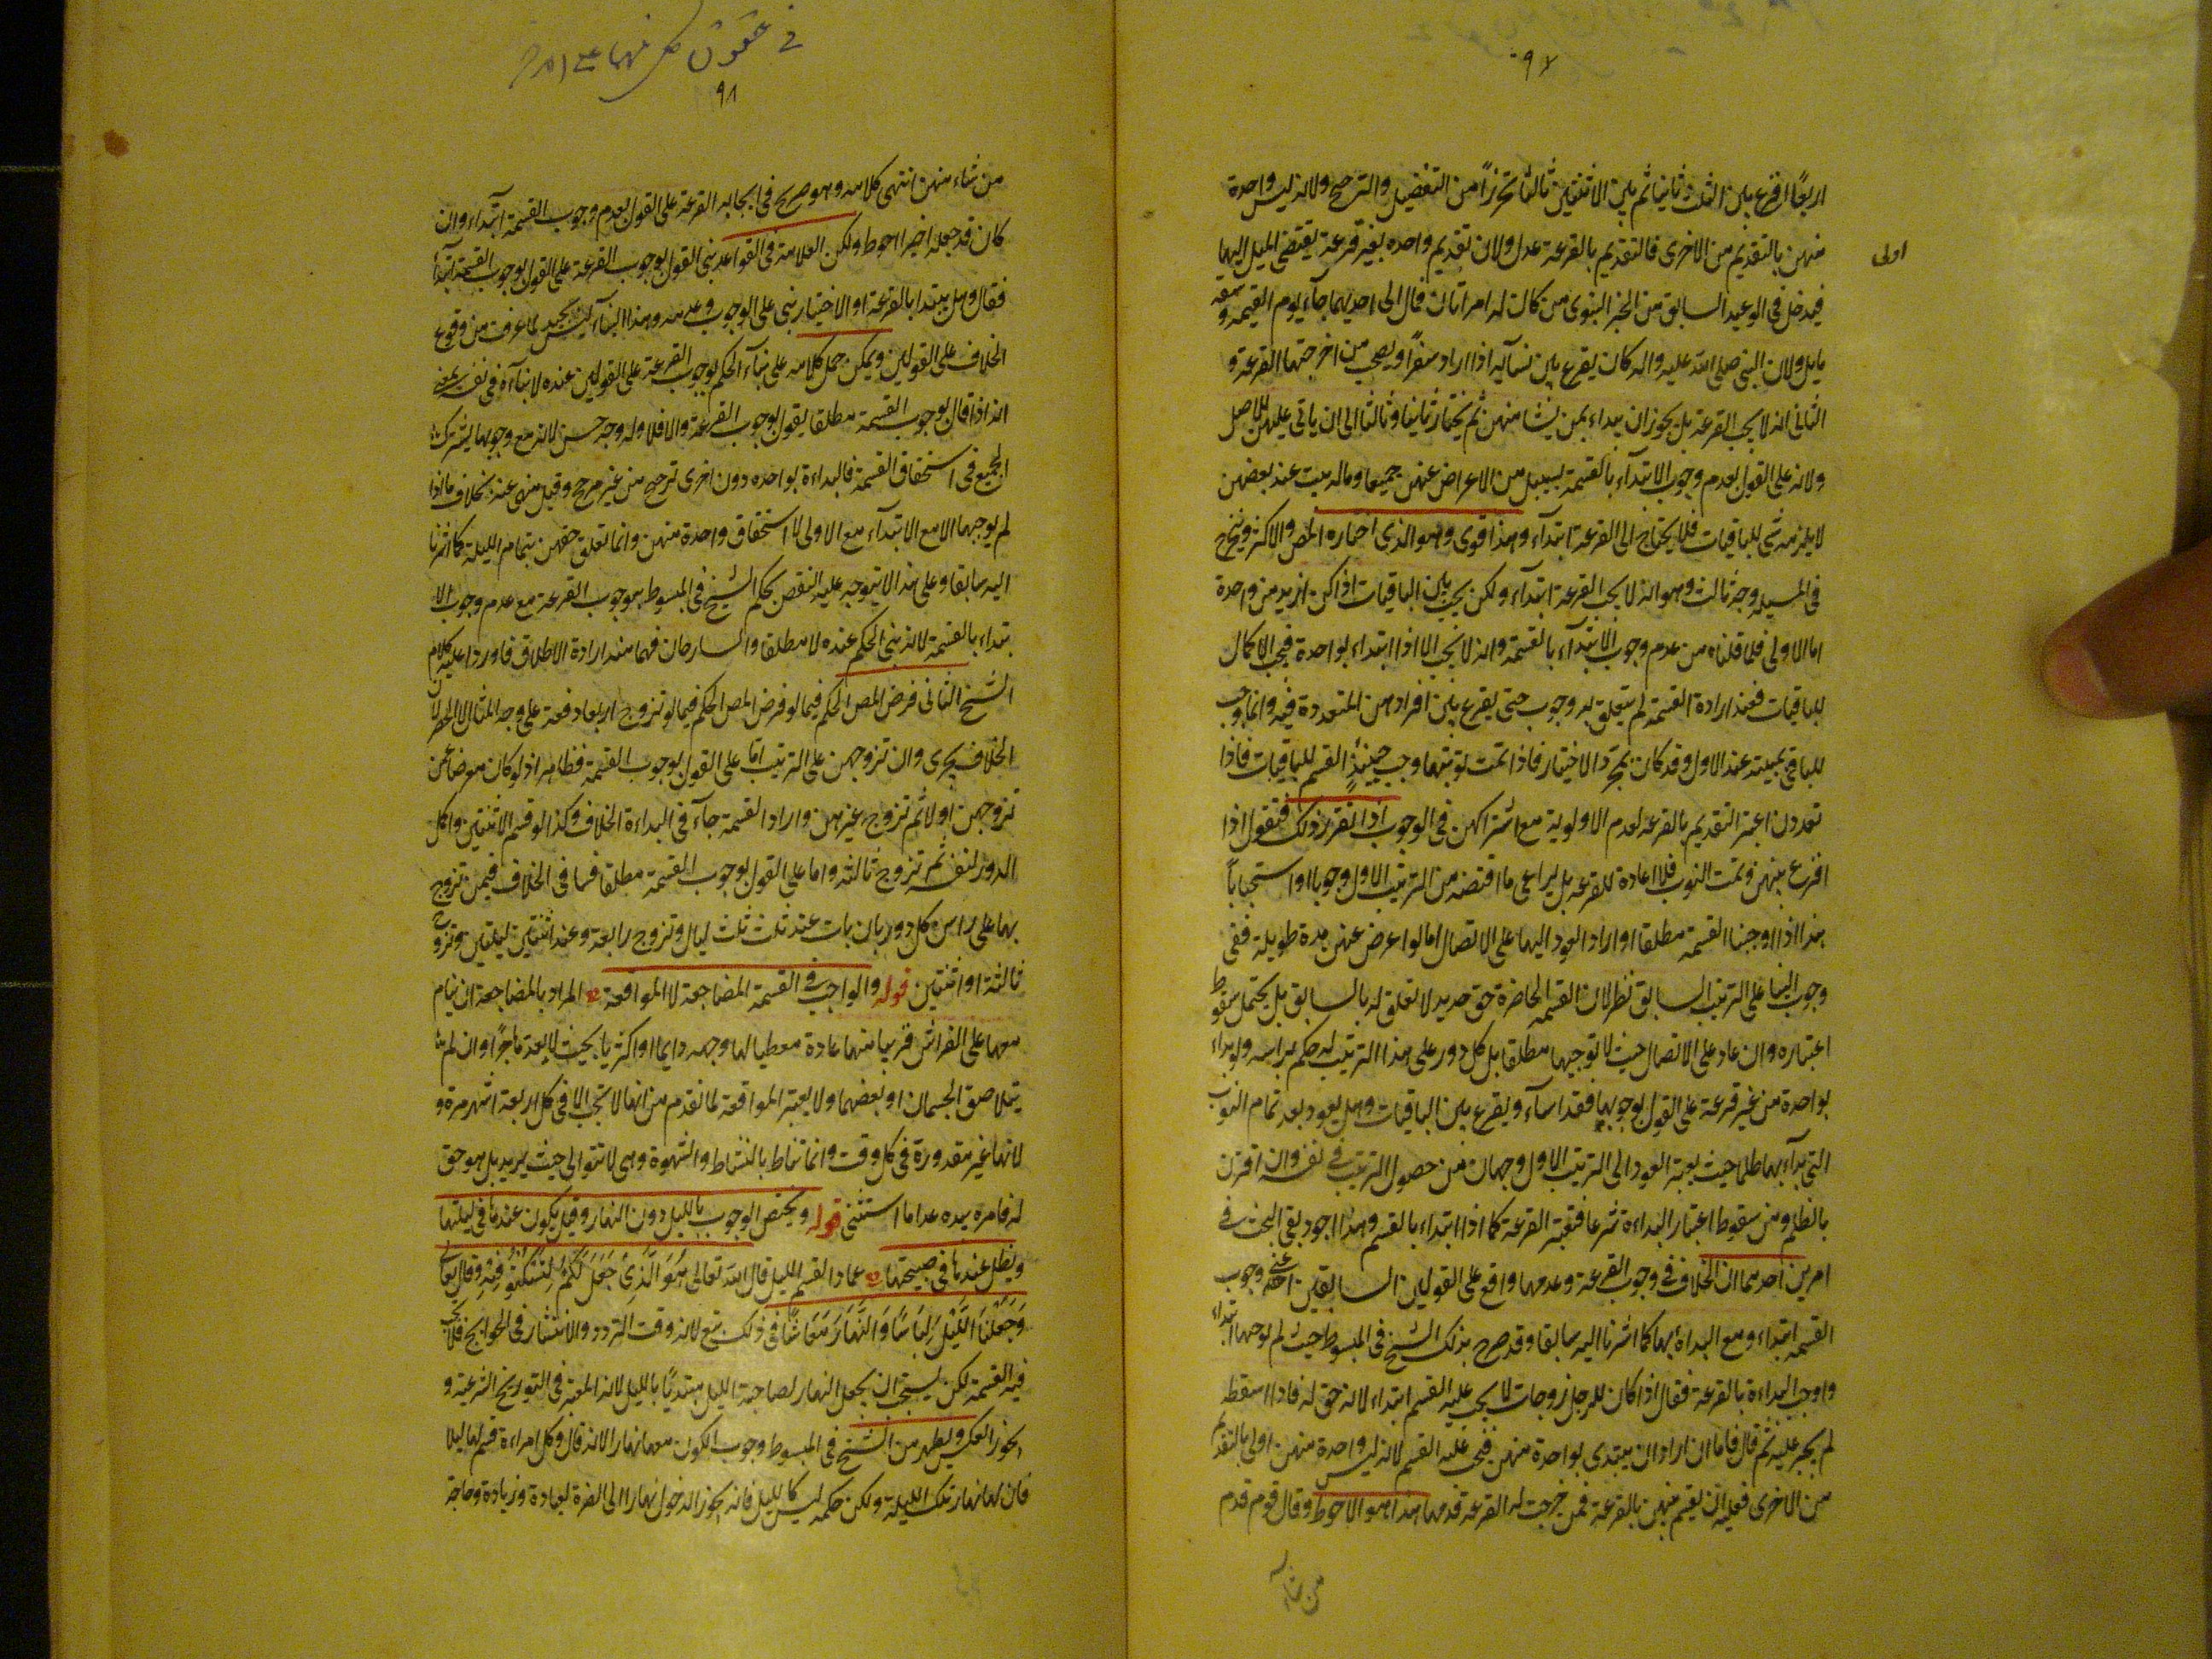 ٩٧
اربعًا اقرع بين الثلث ثانيا ثم بين الاثنتين ثالثا تحرزًا من التفضيل والترجيح ولانه ليس واحدة
اولى
منهن بالتقديم من الاخرى فالتقديم بالقرعة عدل ولان تقديم واحده بغير قرعة يقتضى الميل اليها
فيدخل فى الوعيد السابق من الخبر النبوى من كان له امراتان فمال الى احديهما جآء يوم القيمة وشقه
مايل ولان النبى صلى الله عليه واله كان يقرع بين نسائه اذا اراد سفرًا ويصحب من اخرجتها القرعة و
الثانى انه لا يجب القرعة بل يجوز ان يبداء بمن يشا منهن ثم يختار ثانيا وثالثا الى ان ياتى عليهن للاصل
ولانه على القول بعدم وجوب الابتدآء بالقسمة بسبيل من الاعراض عنهن جميعا وماله يبيت عند بعضهن
لا يلزمه شى للباقيات فلا يحتاج الى القرعة ابتدآء وهذا قوى وهو الذى اختاره المص والاكثر ويخرج
فى المسيلة وجه ثالث وهو انه لا يجب القرعة ابتدآء ولكن يجب بين الباقيات اذا كن ازيد من واحدة
اما الاولى فلما قلناه من عدم وجوب الابتدآء بالقسمة وانه لا يجب الا اذا ابتداء بواحدة فيجب الاكمال
للباقيات فعند ارادة القسمة لم يتعلق به وجوب حتى يقرع بين افراد من المتعددة فيه وانما وجب
للباقى بمبيته عند الاول وقد كان بمجرد الاختيار فاذا تمت نوبتها وجب حينئذ القسم للباقيات فاذا
تعددن اعتبر التقديم بالقرعة لعدم الاولوية مع اشتراكهن فى الوجوب اذا تقرر ذلك فنقول اذا
اقرع بينهن وتمت النوب فلا اعادة للقرعة بل يراعى ما اقتضته من الترتيب الاول وجوبا او استحبابًا
هذا اذا اوجبنا القسمة مطلقا او اراد العود اليها على الاتصال اما لو اعرض عنهن مدة طويلة ففى
وجوب البناء على الترتيب السابق نظر لان القسمة الحاضرة حق جديد لا تعلق له بالسابق بل يحتمل سقوط
اعتباره وان عاد على الاتصال حيث لا توجبها مطلقا بل كل دور على هذا الترتيب له حكم براسه ولو بداء
بواحدة من غير قرعة على القول بوجوبها فقد اسآء ويقرع بين الباقيات وهل يعود بعد تمام النوب
التى بدآء بها ظلما حيث يعتبر العود الى الترتيب الاول وجهان من حصول الترتيب فى نفسه وان اقترن
بالظلم ومن سقوط اعتبار البداءة شرعا فتعتبر القرعة كما اذا ابتداء بالقسم وهذا اجود بقى البحث فى
امرين احدهما ان الخلاف فى وجوب القرعة وعدمها واقع على القولين السابقين اعنى وجوب
القسمة ابتداء ومع البداة بها كما اشرنا اليه سابقا وقد صرح بذلك الشيخ فى المبسوط حيث لم يوجبها ابتداء
واوجب البداءة بالقرعة فقال اذا كان للرجل زوجات لا يجب عليه القسم ابتداء لانه حق له فاذا اسقطه
لم يجبر عليه ثم قال فاما ان اراد ان يبتدى بواحدة منهن فيجب عليه القسم لانه ليس واحدة منهن اولى بالتقديم
من الاخرى فعليه ان يقسم بينهن بالقرعة فمن خرجت له القرعة قدمها هذا هو الاحوط وقال قوم قدم
من شاء
فى حقوق كل منهما على الاخر
٩٨
من شاء منهن انتهى كلامه وهو صريح فى ايجابه القرعة على القول بعدم وجوب القسمة ابتداء وان
كان قد جعله اخيرا احوط ولكن العلامة فى القواعد بنى القول بوجوب القرعة على القول بوجوب القسمة ابتدآء
فقال وهل يبتدا بالقرعة او الاختيار بنى على الوجوب وعدمه وهذا البنآء ليس بجيد لما عرفت من وقوع
الخلاف على القولين ويمكن حمل كلامه على بنآء الحكم بوجوب القرعة على القولين عنده لا بنآءه فى نفسه بمعنى
انه اذا قال بوجوب القسمة مطلقا يقول بوجوب القرعة والا فلا وله وجه حسن لانه مع وجوبها يشترك
الجميع فى استحقاق القسمة فالبداءة بواحده دون اخرى ترجيح من غير مرجح وقيل منهى عنه بخلاف ما اذا
لم يوجبها الا مع الابتدآء مع الاولى لا استحقاق واحدة منهن وانما تعلق حقهن بتمام الليلة كما اشرنا
اليه سابقا وعلى هذا لا يتوجه عليه النقض بحكم الشيخ فى المبسوط بوجوب القرعة مع عدم وجوب الا
بتداء بالقسمة لانه بنى الحكم عنده لا مطلقا والشارحان فهما منه ارادة الاطلاق فاوردا عليه كلام
الشيخ الثانى فرض المص الحكم فيما لو فرض المص الحكم فيما لو تزوج اربعا دفعة على وجه المثال لا الحصر لان
الخلاف يجرى وان تزوجهن على الترتيب اما على القول بوجوب القسمة فظاهر اذ لو كان معرضا عمن
تزوجهن اولا ثم تزوج غيرهن واراد القسمة جآء فى البداءة الخلاف وكذا لو قسم لاثنتين واكمل
الدور لنفسه ثم تزوج ثالثه واما على القول بوجوب القسمة مطلقا فيما فى الخلاف فيمن تزوج
بها على راس كل دور بان بات عند ثلث ثلث ليال وتزوج رابعة وعند اثنتين ليلتين وتزوج
ثالثة او اثنتين قوله والواجب فى القسمة المضاجعة لا المواقعة المراد بالمضاجعة ان ينام
معها على الفراش قريبا منها عادة معطيا لها وجهه دايما او اكثريا بحيث لا يعد هاجرًا وان لم
يتلاصق الجسمان او بعضهما ولا يعتبر المواقعة لما تقدم من انها لا تجب الا فى كل اربعة اشهر مرة و
لانها غير مقدورة فى كل وقت وانما تناط بالنشاط والشهوة وهى لا تتوالى حيث يريد بل هو حق
له فامره بيده عدا ما استثنى قوله ويختص الوجوب بالليل دون النهار وقيل يكون عندها فى ليلتها
ويظل عندها فى صبيحتها عماد القسم الليل قال الله تعالى هُوَ الَّذِى جَعَلَ لَكُمُ لِتَسْكُنُوا فِيْهِ وقال تعالى
وَجَعَلْنَا اللَّيْلَ لِبَاسًا وَالنَّهَارَ مَعَاشًا فى ذلك تبع لانه وقت التردد والانتشار فى الحوايج فلا يجب
فيه القسمة لكن يستحب ان يجعل النهار لصاحبة الليل مبتديًا بالليل لانه المعتبر فى التواريخ الشرعية و
يجوز العكس ويظهر من الشيخ فى المبسوط وجوب الكون معها نهارا لانه قال وكل امراءة قسم لها ليلا
فان لها نهار تلك الليلة ولكن حكمه ليس كالليل فانه يجوز الدخول نهارا الى الضرة لعيادة وزيارة وحاجة